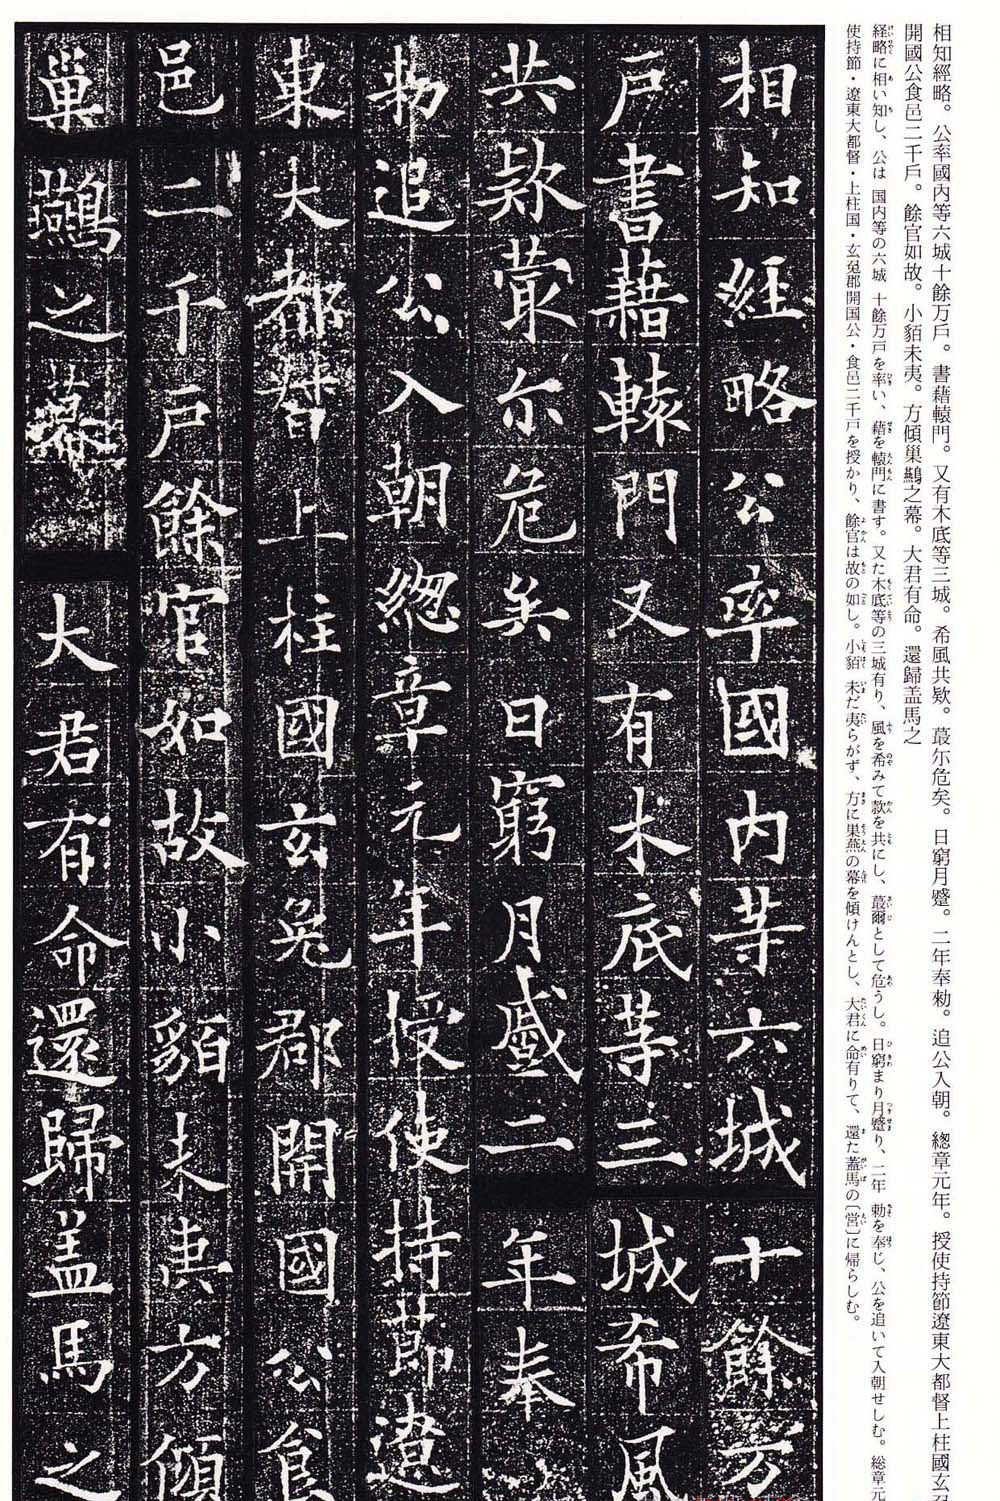 相知經略。公率國内等六城十餘万戶。書藉轅門。又有木底等三城。希風共欵。蕞尓危矣。日窮月蹙。二年奉勑。追公入朝。總章元年。授使持節遼東大都督上柱國玄
開國公食邑二千戶。餘官如故。小貊未夷。方傾巢鷰之幕。大君有命。還歸盖馬之
経略に相い知し、公は 国内等の六城 十餘万戸を率い、藉を轅門に書す。又た木底等の三城有り、風を希みて款を共にし、蕞爾として危うし。日窮まり月蹙り、二年 勅を奉じ、公を追いて入朝せしむ。総章元
使持節・遼東大都督・上柱国・玄菟郡開国公・食邑二千戸を授かり、餘官は故の如し。小貊 未だ夷らがず、方に巣燕の幕を傾けんとし、大君に命有りて、還た蓋馬の〔営〕に帰らしむ。
相知經略公率國内等六城十餘万
戶書藉轅門又有木底等三城希風
共欵蕞尓危矣日窮月蹙二年奉
勑追公入朝總章元年授使持節遼
東大都督上柱國玄菟郡開國公食
邑二千戶餘官如故小貊未夷方傾
巢鷰之幕大君有命還歸盖馬之